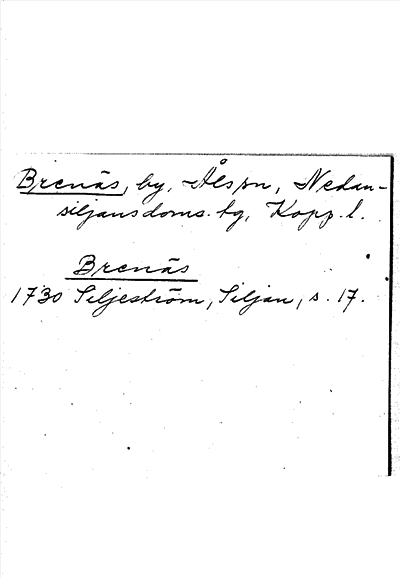 Brenäs, by, Åls sn, Nedan-
siljans doms. tg, Kopp. l.
Brenäs
1730 Siljeström, Siljan, s. 17.